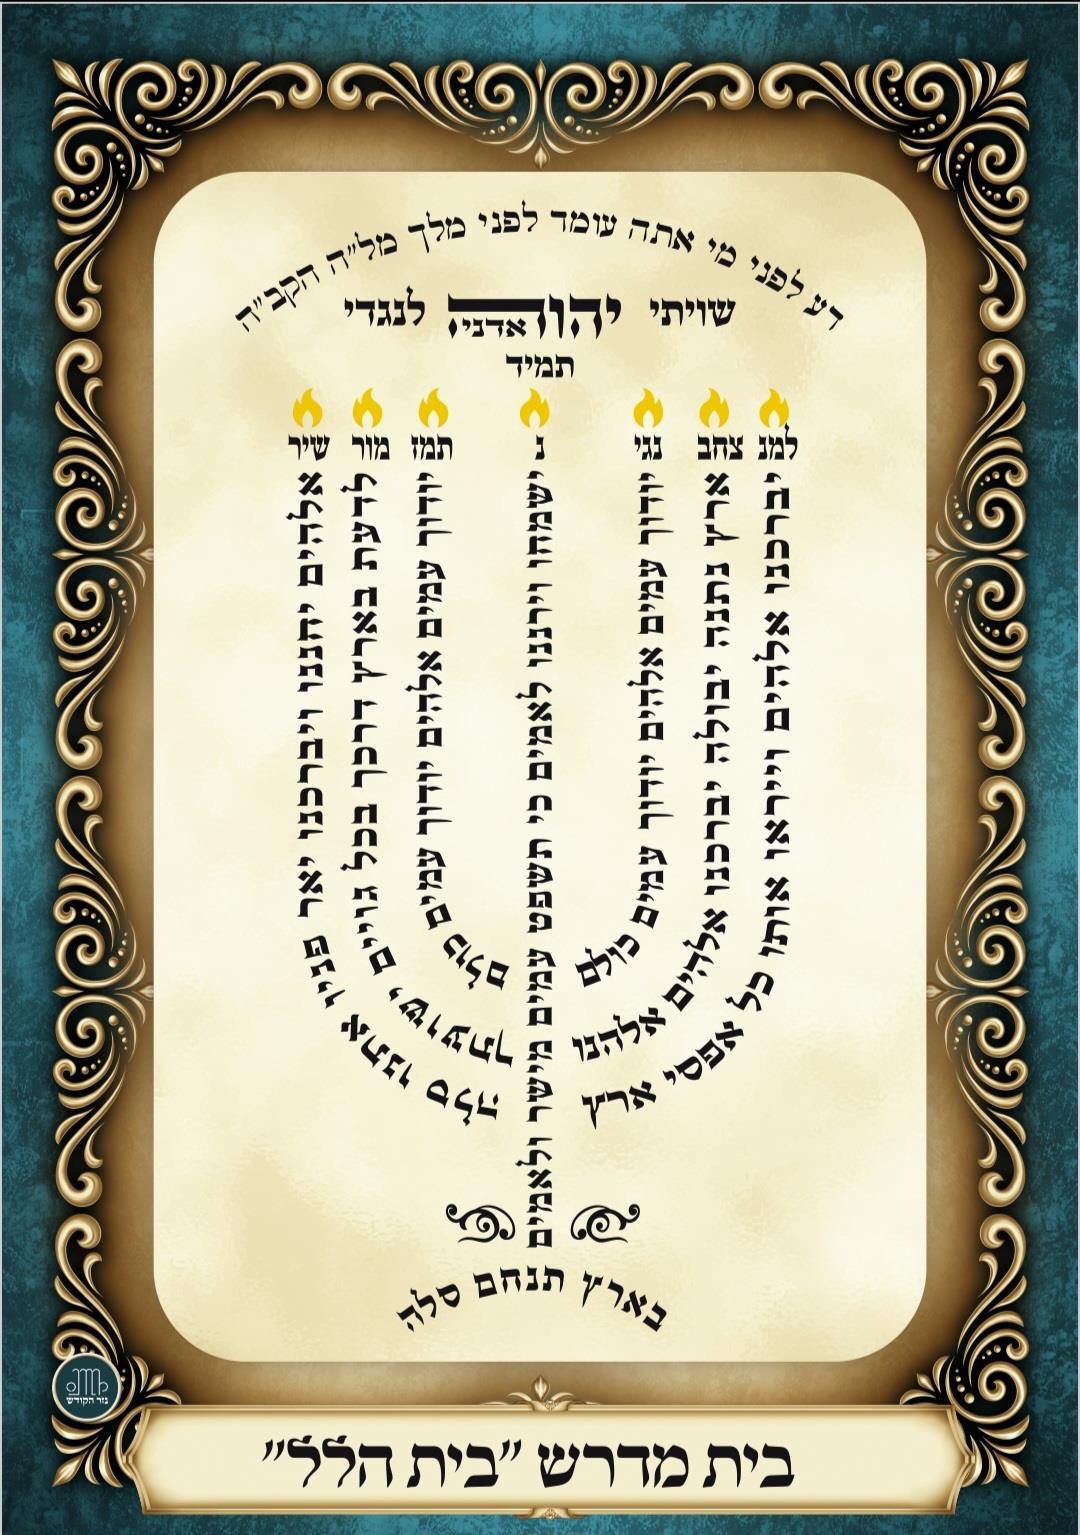 דע לפני מי אתה עומד לפני מלך מל״ה הקב״ה
שויתי יהוה אדני לנגדי
תמיד
למנ צחב נגי נ תמז מור שיר
יברכנו אלהים וייראו אותו כל אפסי ארץ
ארץ נתנה יבולה יברכנו אלהים אלהנו
יודוך עמים אלהים יודוך עמים כולם
ישמחו וירננו לאמים כי תשפט עמים מישר ולאמים
יודוך עמים אלהים יודוך עמים כולם
לדעת בארץ דרכך בכל גויים ישועתך
אלהים יחננו ויברכנו יאר פניו אתנו סלה
בארץ תנחם סלה
נזר הקודש
בית מדרש ״בית הלל״